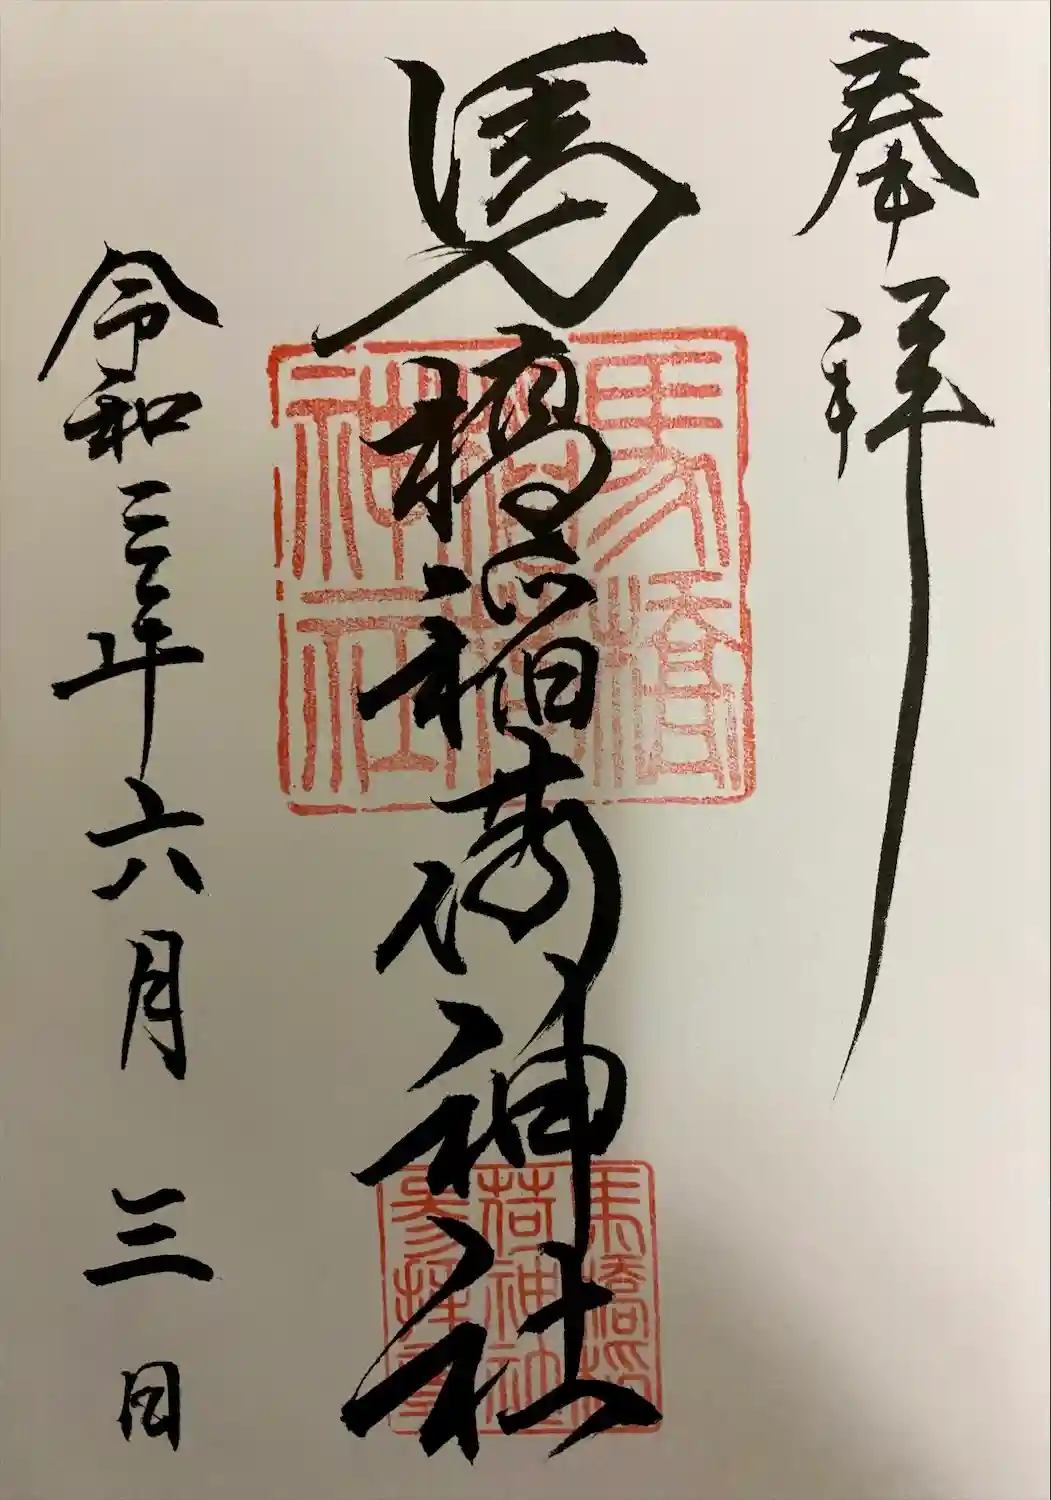 奉拝
馬橋稲荷神社
令和三年六月三日
馬橋
稲荷
神社
馬橋稲
荷神社
参拝